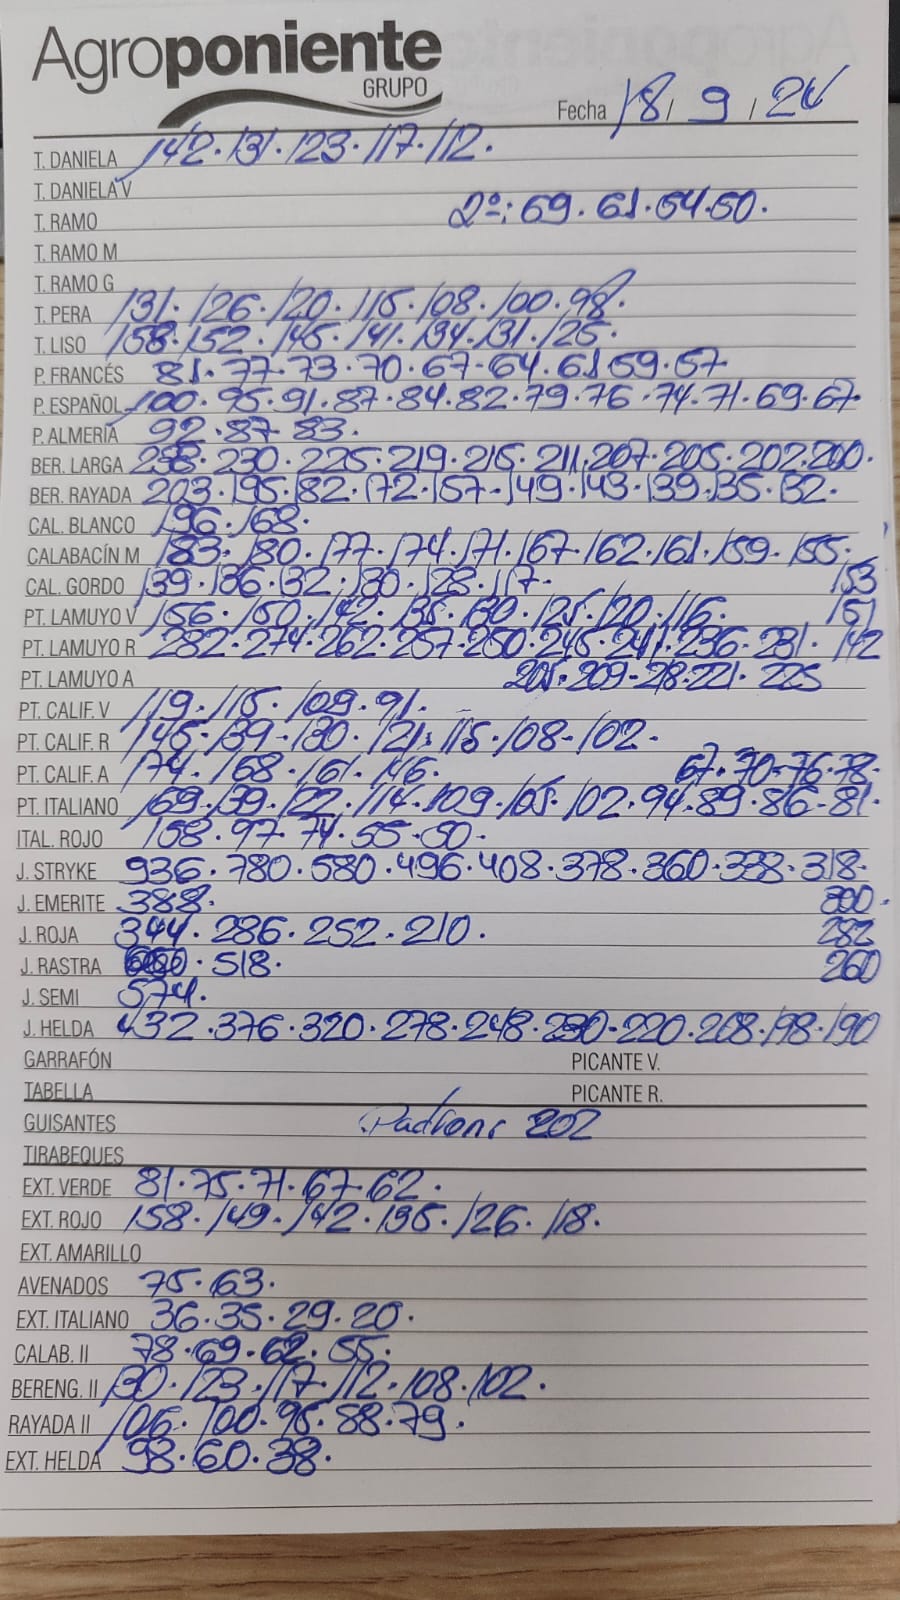 Agroponiente
GRUPO
Fecha 18/ 9 / 24
T. DANIELA 142. 131. 123. 117. 112.
T. DANELA V
T. RAMO 2º: 69. 61. 54. 50.
T. RAMO M
T. RAMO G
T. PERA 131. 126. 120. 115. 108. 100. 98.
T. LISO 158. 152. 145. 141. 134. 131. 125.
P. FRANCÉS 81. 77. 73. 70. 67. 64. 61. 59. 57
P. ESPAÑOL 100. 95. 91. 87. 84. 82. 79. 76. 74. 71. 69. 67.
P. ALMERÍA 92. 87. 83.
BER. LARGA 238. 230. 225. 219. 215. 211. 207. 205. 202. 200.
BER. RAYADA 203. 195. 182. 172. 157. 149. 143. 139. 135. 132.
CAL. BLANCO 196. 168.
CALABACÍN M 183. 180. 177. 174. 171. 167. 162. 161. 159. 155.
CAL. GORDO 139. 136. 132. 130. 128. 117. 153
PT. LAMUYO V 156. 150. 142. 135. 130. 125. 120. 116. 151
PT. LAMUYO R 282. 274. 262. 257. 250. 245. 241. 236. 231. 142
PT. LAMUYO A 205. 209. 218. 221. 225
PT. CALIF. V 119. 115. 109. 91.
PT. CALIF. R 145. 139. 130. 121. 115. 108. 102.
PT. CALIF. A 174. 168. 161. 146. 67. 70. 76. 78.
PT. ITALIANO 169. 139. 122. 114. 109. 105. 102. 94. 89. 86. 81.
ITAL. ROJO 158. 97. 74. 55. 50.
J. STRYKE 936. 780. 580. 496. 408. 378. 360. 338. 318.
J. EMERITE 388. 300.
J. ROJA 344. 286. 252. 210. 282
J. RASTRA 518. 260
J. SEMI 574.
J. HELDA 432. 376. 320. 278. 248. 230. 220. 208. 198. 190
GARRAFÓN PICANTE V.
TABELLA PICANTE R.
GUISANTES Padrons 202
TIRABEQUES
EXT. VERDE 81. 75. 71. 67. 62.
EXT. ROJO 158. 149. 142. 135. 126. 118.
EXT. AMARILLO
AVENADOS 75. 63.
EXT. ITALIANO 36. 35. 29. 20.
CALAB. II 78. 69. 62. 55.
BERENG. II 130. 123. 117. 112. 108. 102.
RAYADA II 106. 100. 95. 88. 79.
EXT. HELDA 98. 60. 38.